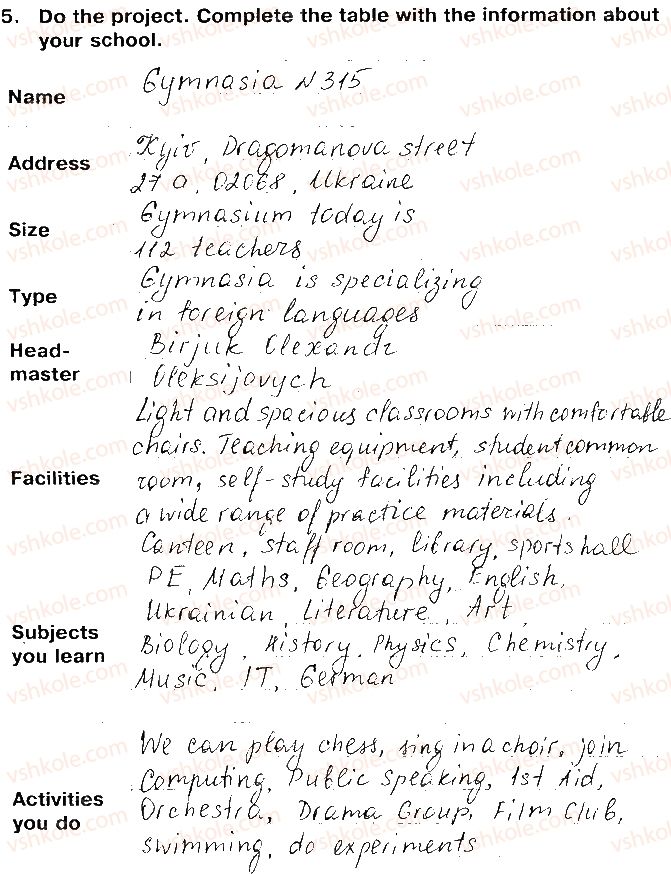 5. Do the project. Complete the table with the information about
your school.
Name Gymnasia N 315
Address Kyiv, Dragomanova street
27 a, 02068, Ukraine
Size Gymnasium today is
112 teachers
Type Gymnasia is specializing
in foreign languages
Head-
master Birjuk Olexandr
Oleksijovych
Facilities Light and spacious classrooms with comfortable
chairs. Teaching equipment, student common
room, self-study facilities including
a wide range of practice materials.
Canteen, staff room, library, sports hall
Subjects
you learn PE, Maths, Geography, English,
Ukrainian, Literature, Art,
Biology, History, Physics, Chemistry,
Music, IT, German
Activities
you do We can play chess, sing in a choir, join
Computing, Public speaking, 1st Aid,
Orchestra, Drama Group, Film Club,
swimming, do experiments
vshkole.com